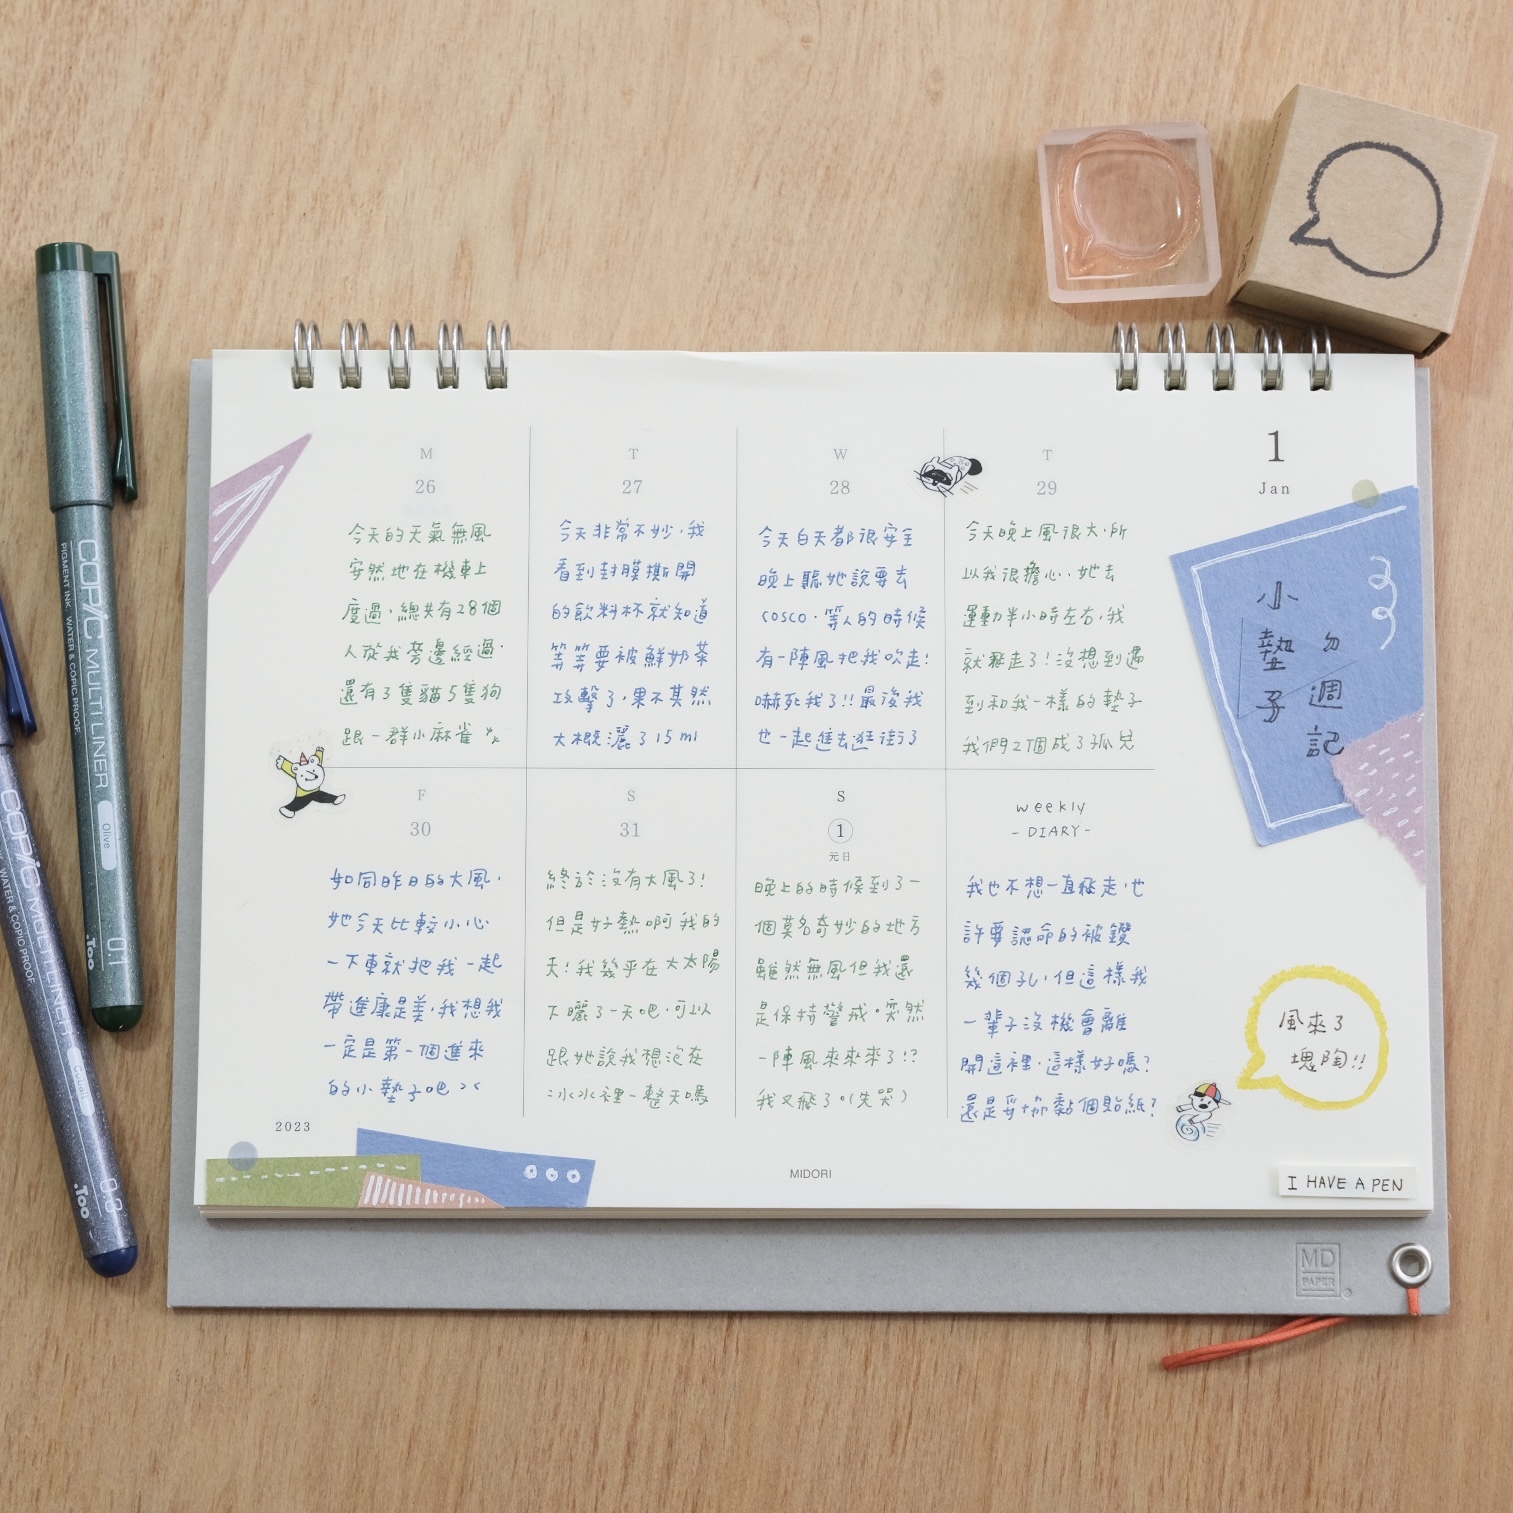 COPIC MULTI LINER
PIGMENT INK WATER & COPIC PROOF
Olive
0.1
.Too
COPIC MULTI LINER
WATER & COPIC PROOF
Cobalt
0.3
.Too
1
Jan
M
26
今天的天氣無風
安然地在機車上
度過，總共有28個
人從我旁邊經過，
還有3隻貓5隻狗
跟一群小麻雀
T
27
今天非常不妙，我
看到封膜撕開
的飲料杯就知道
等等要被鮮奶茶
攻擊了，果不其然
大概灑了15ml
W
28
今天白天都很安全
晚上聽她說要去
cosco，等人的時候
有一陣風把我吹走!
嚇死我了!!最後我
也一起進去逛街了
T
29
今天晚上風很大，所
以我很擔心、她去
運動半小時左右，我
就飛走了!沒想到遇
到和我一樣的墊子
我們2個成了孤兒
F
30
如同昨日的大風，
她今天比較小心
一下車就把我一起
帶進康是美，我想我
一定是第一個進來
的小墊子吧 ><
S
31
終於沒有大風了!
但是好熱啊我的
天!我幾乎在大太陽
下曬了一天吧，可以
跟她說我想泡在
冰水裡一整天嗎
S
1
元日
晚上的時候到了一
個莫名奇妙的地方
雖然無風但我還
是保持警戒。突然
一陣風來來來了!?
我又飛了。(失哭)
weekly
-DIARY-
我也不想一直飛走，也
許要認命的被鑽
幾個孔，但這樣我
一輩子沒機會離
開這裡，這樣好嗎?
還是妥協黏個貼紙?
小墊子
ㄉ週記
風來了
塊陶!!
2023
MIDORI
I HAVE A PEN
MD
PAPER